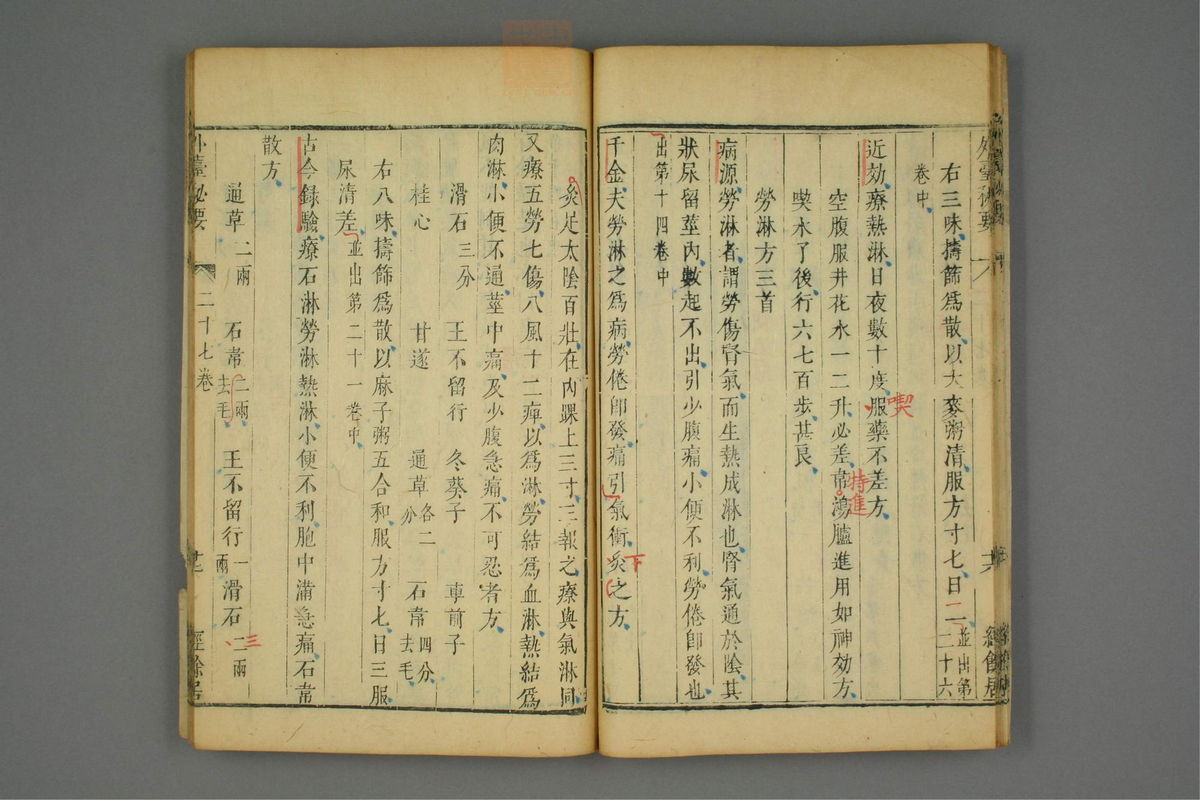 右三味擣篩爲散以大麥粥清服方寸七日二並出第二十六
卷中
近効療熱淋日夜數十度服藥不差方
喫
空腹服井花水一二升必差韋鴻臚進用如神効方
特進
喫水了後行六七百步甚良
勞淋方三首
病源勞淋者謂勞傷腎氣而生熱成淋也腎氣通於陰其
狀尿留莖内數起不出引少腹痛小便不利勞倦卽發也
出第十四卷中
千金夫勞淋之爲病勞倦卽發痛引氣衝灸之方
下
灸足太陰百壯在内踝上三寸三報之療與氣淋同
又療五勞七傷八風十二痺以爲淋勞結爲血淋熱結爲
肉淋小便不通莖中痛及少腹急痛不可忍者方
滑石三分 王不留行 冬葵子 車前子
桂心 甘遂 通草各二分 石韋四分去毛
右八味擣篩爲散以麻子粥五合和服方寸七日三服
尿清差並出第二十一卷中
古今録驗療石淋勞淋熱淋小便不利胞中滿急痛石韋
散方
通草二兩 石韋二兩去毛 王不留行一兩 滑石二兩
三
外臺祕要 二十七卷 經餘居